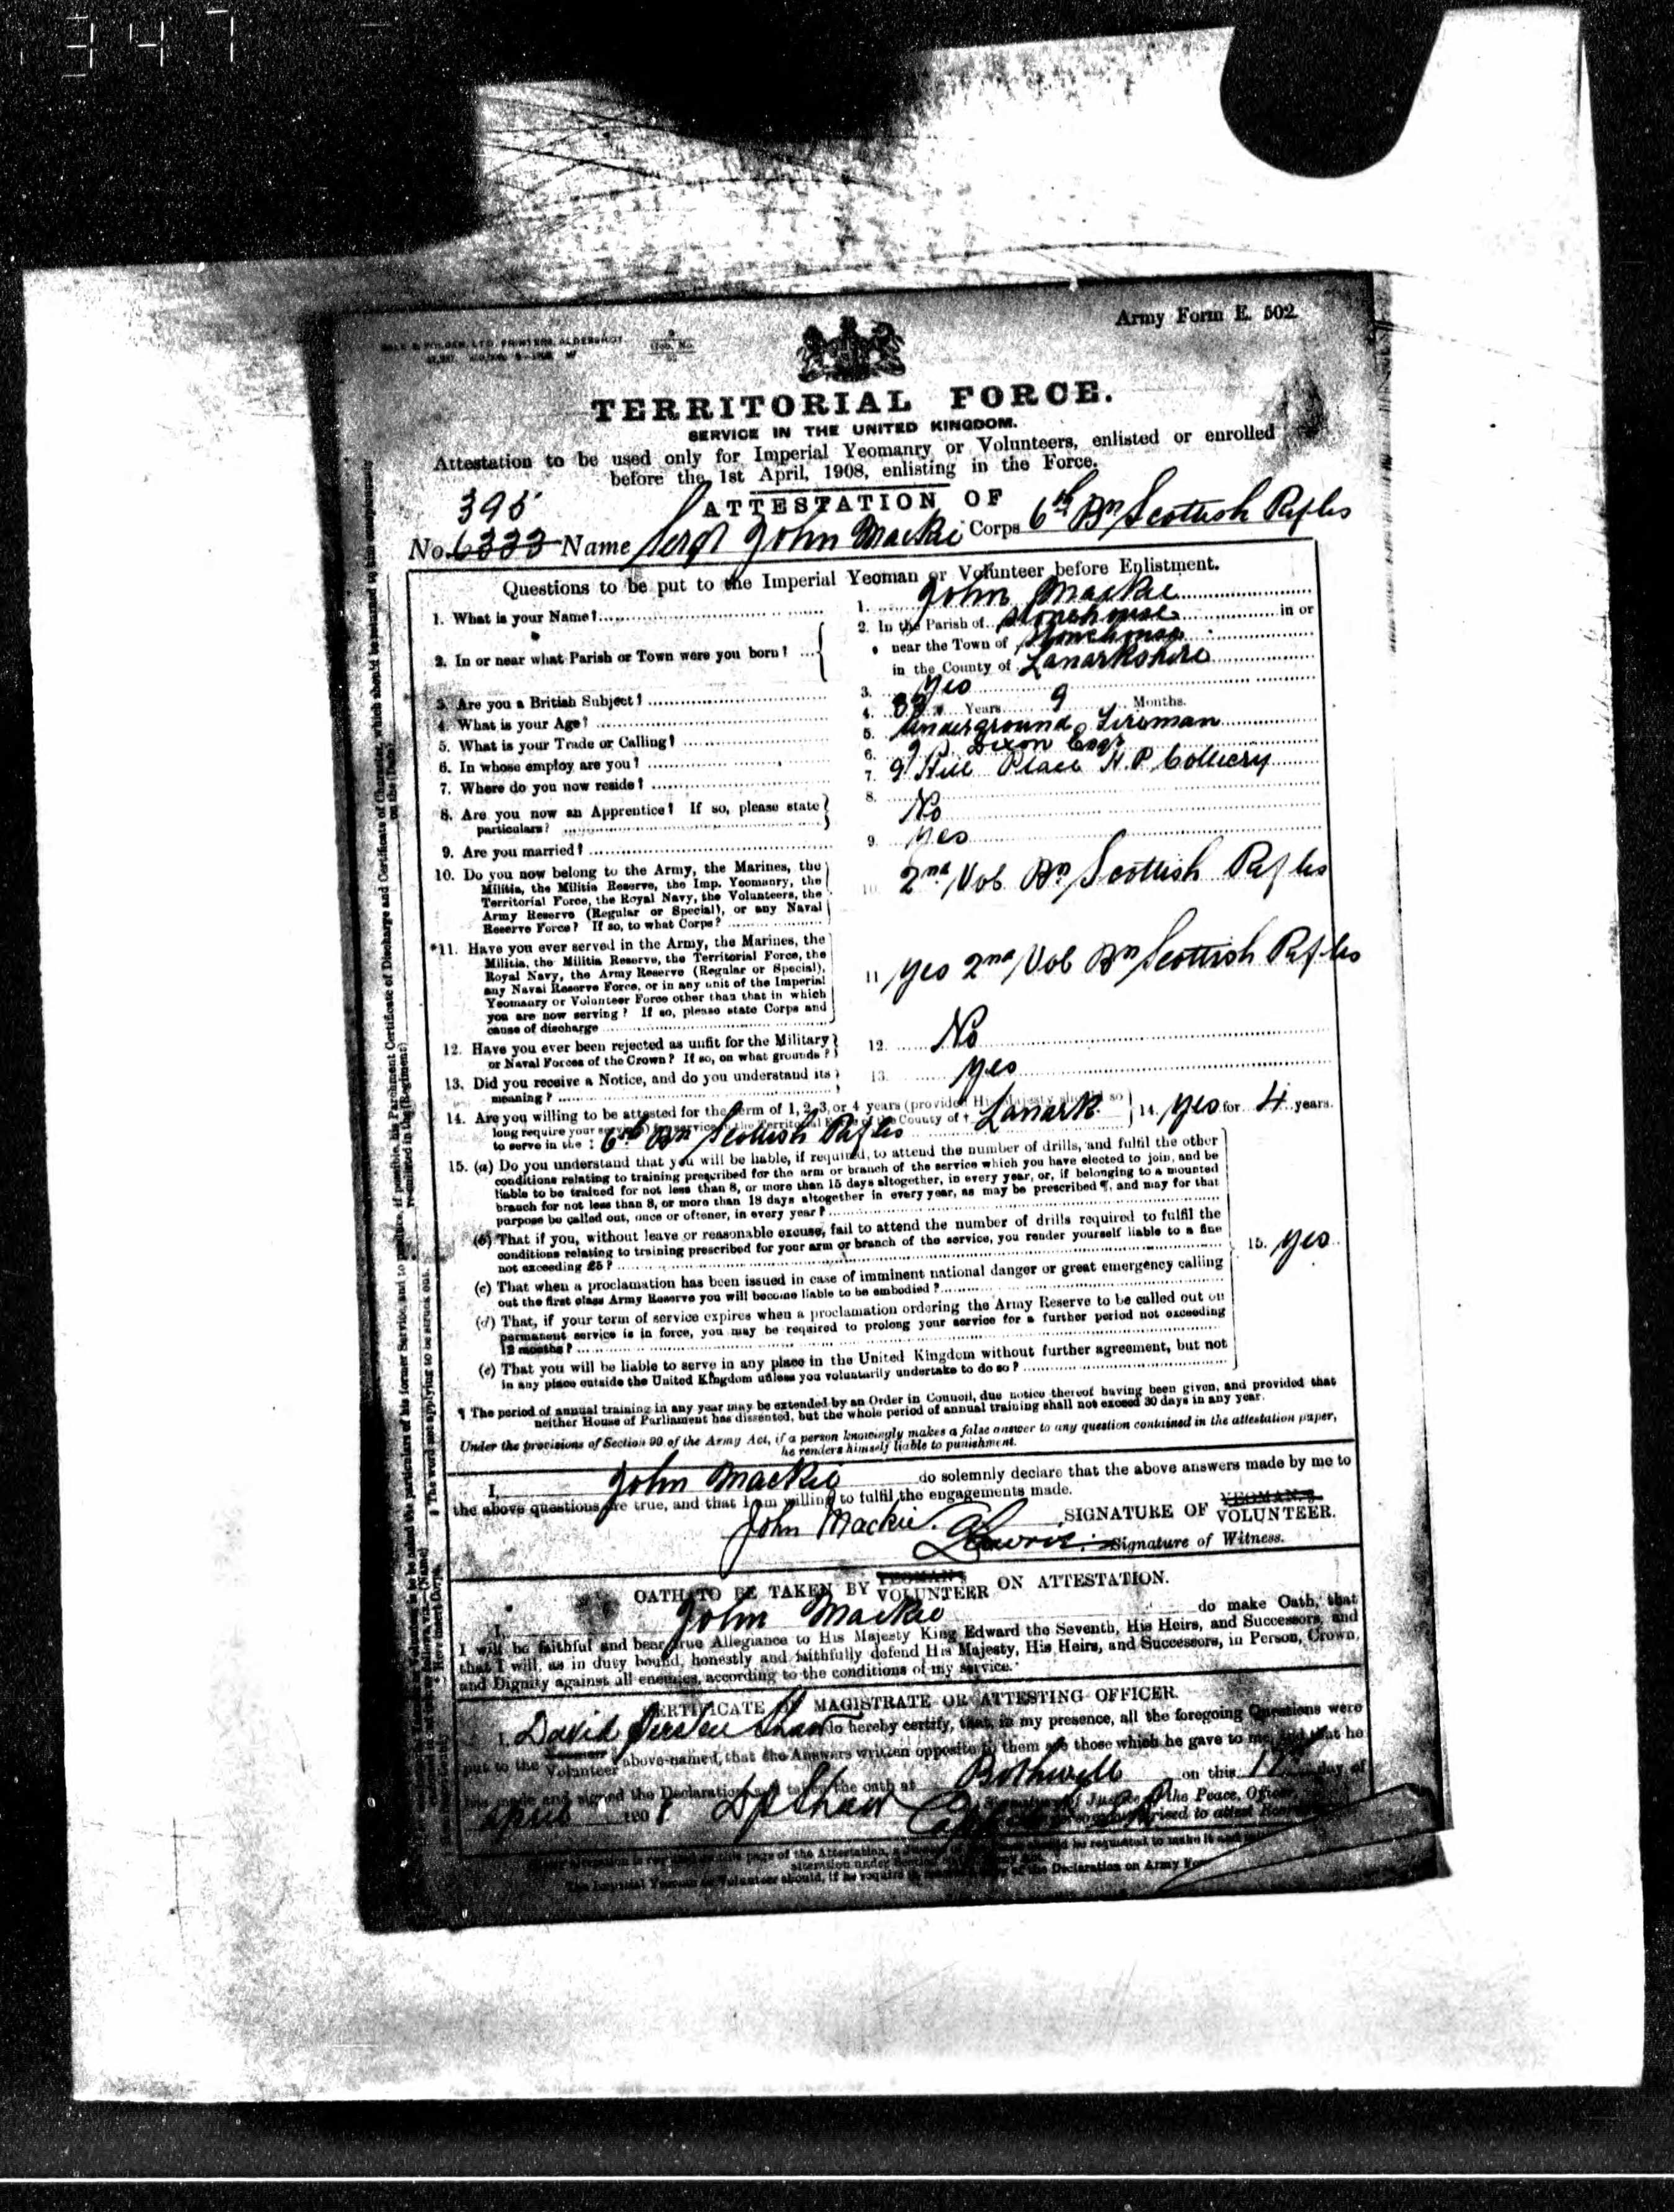 347
Army Form E. 502.
TERRITORIAL FORCE.
SERVICE IN THE UNITED KINGDOM.
Attestation to be used only for Imperial Yeomanry or Volunteers, enlisted or enrolled
before the 1st April, 1908, enlisting in the Force.
395
ATTESTATION OF
No. 6333 Name Sergt John Mackie Corps 6th Bn Scottish Rifles
Questions to be put to the Imperial Yeoman or Volunteer before Enlistment.
1. What is your Name? 1. John Mackie
2. In or near what Parish or Town were you born? 2. In the Parish of Stonehouse in or
near the Town of Stonehouse
in the County of Lanarkshire
3. Are you a British Subject? 3. Yes
4. What is your Age? 4. Years 9 Months.
5. What is your Trade or Calling? 5. Underground Fireman
6. In whose employ are you? 6. Dixon Esqr
7. Where do you now reside? 7. 9 Hill Place H. P. Colliery
8. Are you now an Apprentice? If so, please state 8. No
particulars?
9. Are you married? 9. Yes
10. Do you now belong to the Army, the Marines, the
Militia, the Militia Reserve, the Imp. Yeomanry, the
Territorial Force, the Royal Navy, the Volunteers, the
Army Reserve (Regular or Special), or any Naval
Reserve Force? If so, to what Corps?
10 2nd Vol Bn Scottish Rifles
*11. Have you ever served in the Army, the Marines, the
Militia, the Militia Reserve, the Territorial Force, the
Royal Navy, the Army Reserve (Regular or Special),
any Naval Reserve Force, or in any unit of the Imperial
Yeomanry or Volunteer Force other than that in which
you are now serving? If so, please state Corps and
cause of discharge
11 Yes 2nd Vol Bn Scottish Rifles
12. Have you ever been rejected as unfit for the Military 12. No
or Naval Forces of the Crown? If so, on what grounds?
13. Did you receive a Notice, and do you understand its 13. Yes
meaning?
14. Are you willing to be attested for the term of 1, 2, 3, or 4 years (provided His Majesty should so
long require your services) for service in the Territorial Force of the County of † Lanark 14. Yes for 4 years.
to serve in the ‡ 6th Bn Scottish Rifles
15. (a) Do you understand that you will be liable, if required, to attend the number of drills, and fulfil the other
conditions relating to training prescribed for the arm or branch of the service which you have elected to join, and be
liable to be trained for not less than 8, or more than 15 days altogether, in every year, or, if belonging to a mounted
branch for not less than 8, or more than 18 days altogether in every year, as may be prescribed ¶, and may for that
purpose be called out, once or oftener, in every year?
(b) That if you, without leave or reasonable excuse, fail to attend the number of drills required to fulfil the
conditions relating to training prescribed for your arm or branch of the service, you render yourself liable to a fine
not exceeding £5?
15. Yes
(c) That when a proclamation has been issued in case of imminent national danger or great emergency calling
out the first class Army Reserve you will become liable to be embodied?
(d) That, if your term of service expires when a proclamation ordering the Army Reserve to be called out on
permanent service is in force, you may be required to prolong your service for a further period not exceeding
12 months?
(e) That you will be liable to serve in any place in the United Kingdom without further agreement, but not
in any place outside the United Kingdom unless you voluntarily undertake to do so?
¶ The period of annual training in any year may be extended by an Order in Council, due notice thereof having been given, and provided that
neither House of Parliament has dissented, but the whole period of annual training shall not exceed 30 days in any year.
Under the provisions of Section 99 of the Army Act, if a person knowingly makes a false answer to any question contained in the attestation paper,
he renders himself liable to punishment.
I, John Mackie do solemnly declare that the above answers made by me to
the above questions are true, and that I am willing to fulfil the engagements made.
John Mackie SIGNATURE OF YEOMAN'S VOLUNTEER.
Signature of Witness.
OATH TO BE TAKEN BY YEOMAN'S VOLUNTEER ON ATTESTATION.
I, John Mackie do make Oath, that
I will be faithful and bear true Allegiance to His Majesty King Edward the Seventh, His Heirs, and Successors, and
that I will, as in duty bound, honestly and faithfully defend His Majesty, His Heirs, and Successors, in Person, Crown,
and Dignity against all enemies, according to the conditions of my service.
CERTIFICATE OF MAGISTRATE OR ATTESTING OFFICER.
I, David Shaw do hereby certify, that, in my presence, all the foregoing Questions were
put to the Volunteer above-named, that the Answers written opposite to them are those which he gave to me, and that he
has made and signed the Declaration and taken the oath at Bothwell on this day of
April 1908 Shaw Signature of Justice of the Peace, Officer